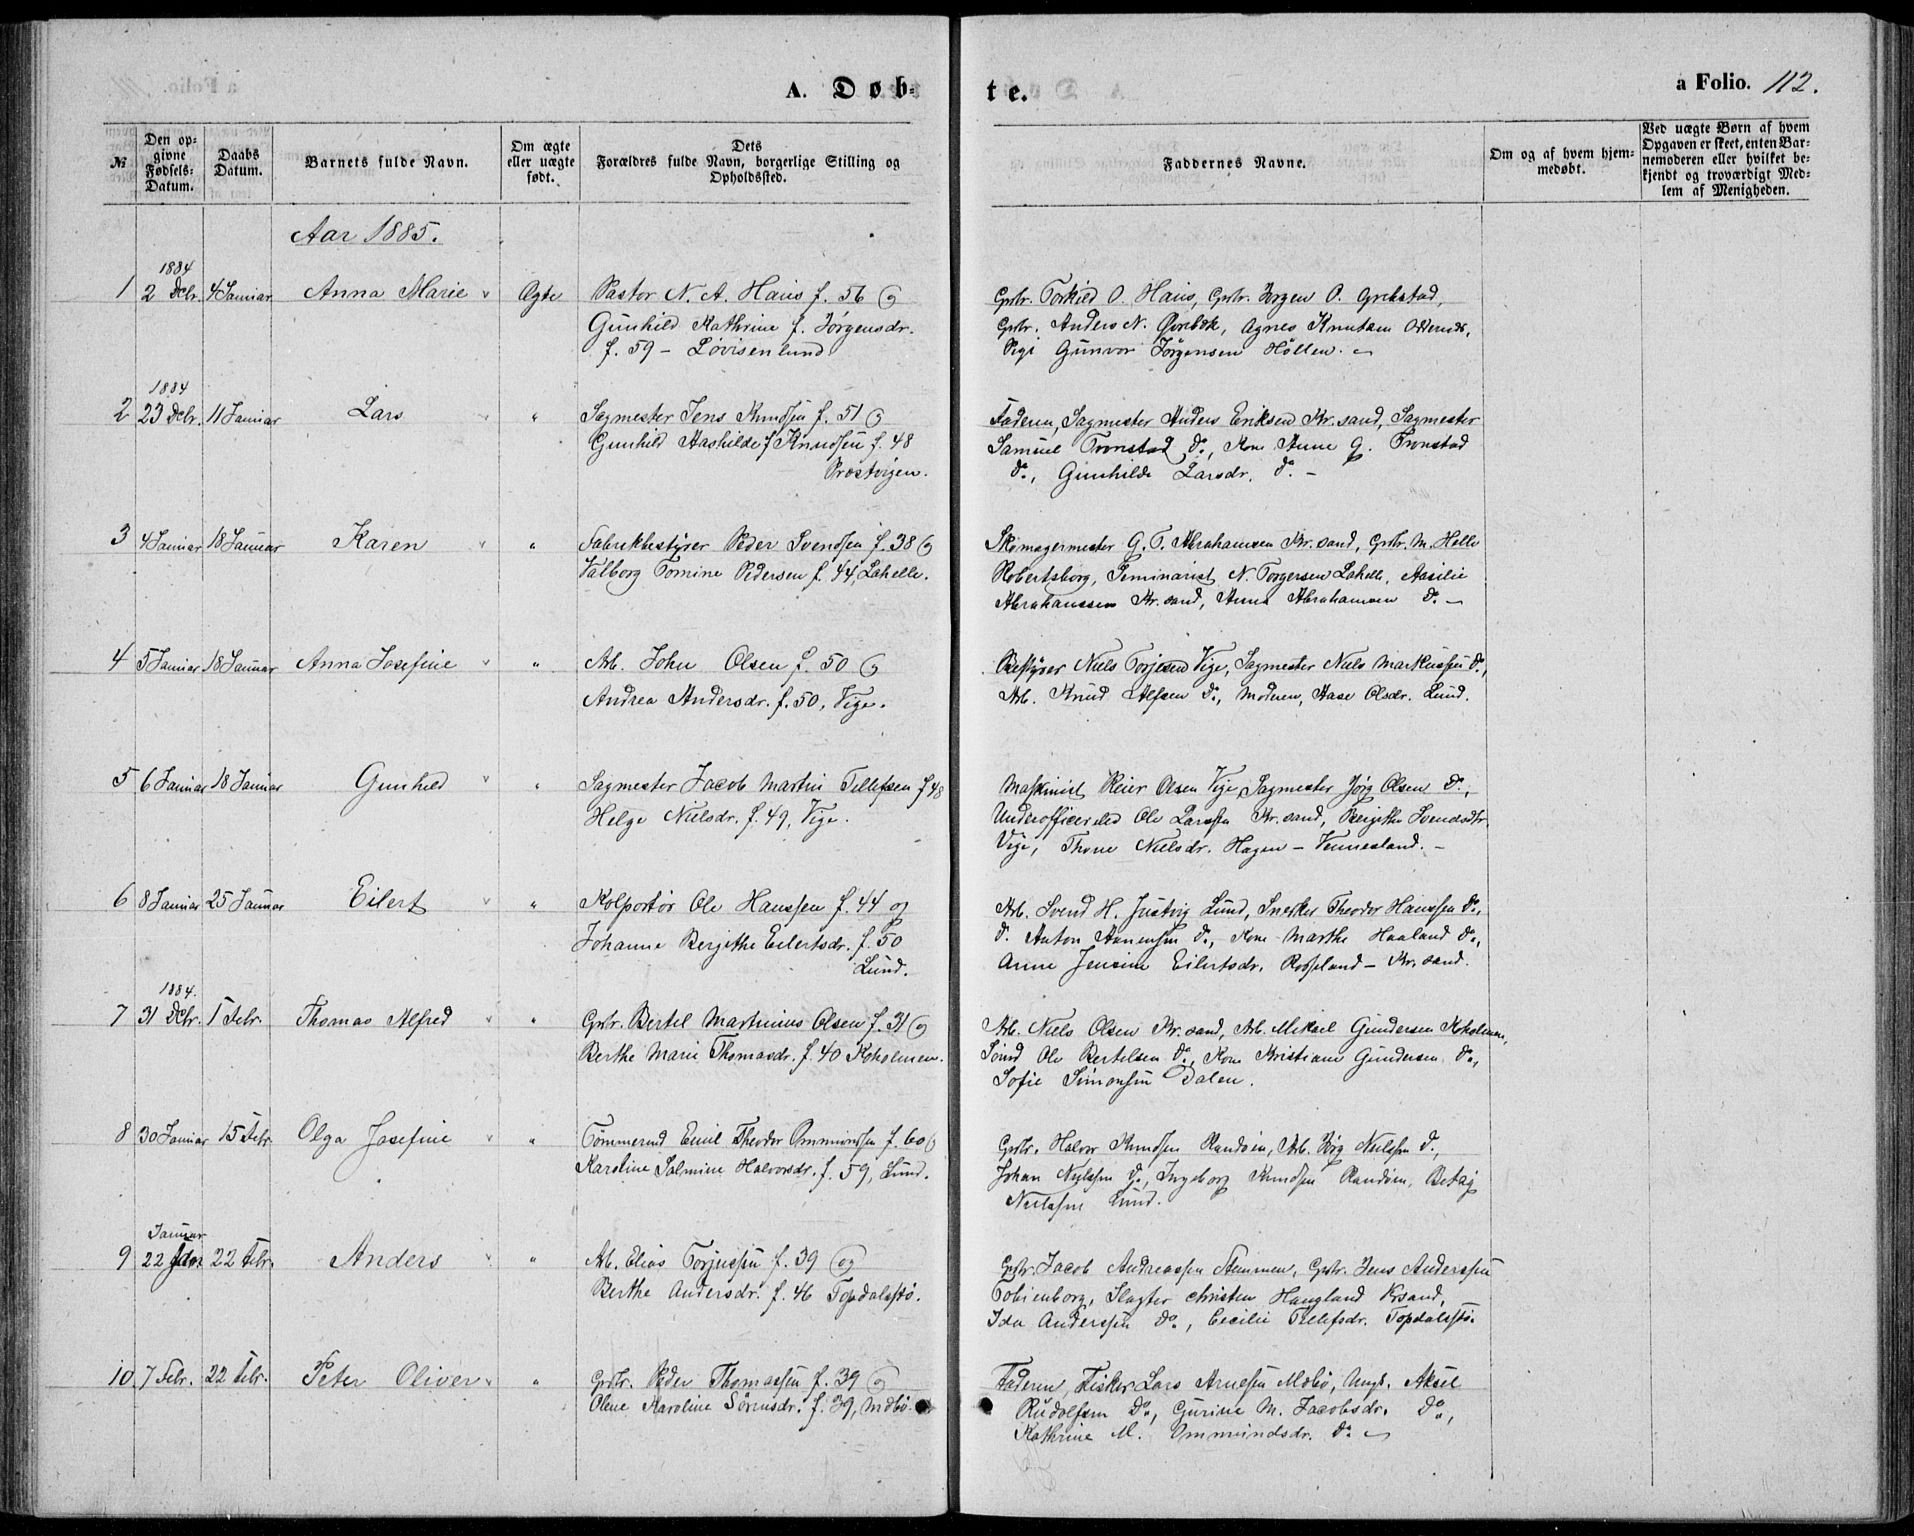 A. Døb-
te.
a Folio. 112.
№
Den op-
givne
Fødsels-
Datum.
Daabs
Datum.
Barnets fulde Navn.
Om ægte
eller uægte
født.
Dets
Forældres fulde Navn, borgerlige Stilling og
Opholdssted.
Faddernes Navne.
Om og af hvem hjem-
medøbt.
Ved uægte Børn af hvem
Opgaven er skeet, enten Bar-
nemoderen eller hvilket be-
kjendt og troværdigt Med-
lem af Menigheden.
Aar 1885.
1884
1 2 Dcbr. 4 Januar Anna Marie " Ægte Pastor N. A. Haus f. 56 og
Gunhild Kathrine f. Jørgensdr.
f. 59 - Lovisenlund
Gbr. Torkild O. Haus, Gbr. Jørgen P. Grebstad,
Gbr. Anders N. Øvrebøk, Agnes Knutsen Odderøds,
Pige Gunvor Jørgensen Höllen.
1884
2 23 Dcbr. 11 Januar Lars " Sagmester Jens Knudsen f. 51 og
Gunhild Aashilde f. Knudsen f. 48
Prostvigen.
Faderen, Sagmester Anders Eriksen Kr.sand, Sagmester
Samuel Tronstad do., Kone Anne G. Tronstad
do., Gunhilde Larsdr. do. -
3 4 Januar 18 Januar Karen " " Fabrikbestyrer Peder Svendsen f. 38 og
Valborg Tomine Pedersen f. 44, Lahelle.
Skomagermester G. T. Abrahamsen Kr.sand, Gbr. M. Helle
Robertsborg, Seminarist N. Torgersen Lahelle, Aasilie
Abrahamssen Kr.sand, Anna Abrahamsen do. -
4 5 Januar 18 Januar Anna Josefine " " Arb. John Olsen f. 50 og
Andrea Andersdr. f. 50, Vige.
Bestyrer Niels Torjesen Vige, Sagmester Niels Markussen do.,
Arb. Knud Alfsen do., Moderen, Aase Olsdr. Lund.
5 6 Januar 18 Januar Gunhild " " Sagmester Jacob Martin Tellefsen f. 48
Helge Nielsdr. f. 49, Vige.
Maskinist Reier Olsen Vige, Sagmester Jörg Olsen do.,
Underofficerseled Ole Larssen Kr.sand, Birgithe Svendsdtr.
Vige, Thone Nielsdr. Hagen - Vennesland. -
6 8 Januar 25 Januar Eilert " " Kolportør Ole Hanssen f. 44 og
Johanne Bergithe Eilertsdr. f. 50
Lund.
Arb. Svend H. Justvig Lund, Snekker Theodor Hanssen do.,
do. Anton Aanensen do., Kone Marthe Haaland do.,
Anne Jensine Eilertsdr. Rosseland - Kr.sand.
1884.
7 31 Dcbr. 1 Febr. Thomas Alfred " " Gbr. Bertel Martinius Olsen f. 31 og
Berthe Marie Thomasdr. f. 40 Koholmen.
Arb. Niels Olsen Kr.sand, Arb. Mikael Gundersen Koholmen,
Ole Bertelsen do., Kone Kristiane Gundersen do.,
Sofie Simonsen Dalen.
8 30 Januar 15 Febr. Olga Josefine " " Tømmermd Emil Theodor Ommundsen f. 60 og
Karoline Salmine Halvorsdr. f. 59, Lund.
Gbr. Halvor Knudsen Randøen, Arb. Jörg Nielssen do.,
Johan Nielssen do., Ingeborg Knudsen Randøen, Betzy
Nielssen Lund.
Januar
9 22 22 Febr. Anders " " Arb. Elias Torjussen f. 39 og
Berthe Andersdr. f. 46 Topdalsstø.
Gbr. Jacob Andreassen Stemmen, Gbr. Jens Anderssen
Tobienborg, Slagter Christen Haugland Krsand,
Ida Anderssen do., Cecilie Tellefsdr. Topdalsstø.
10. 7 Febr. 22 Febr. Peter Oliver " " Gbr. Peder Thomassen f. 39 og
Olene Karoline Sörensdr. f. 39, Mebø.
Faderen, Fisker Lars Arnesen Mebø, Ungk. Aksel
Rudolfsen do., Gurine M. Jacobsdr. do.,
Kathrine M. Ommundsdr. do.